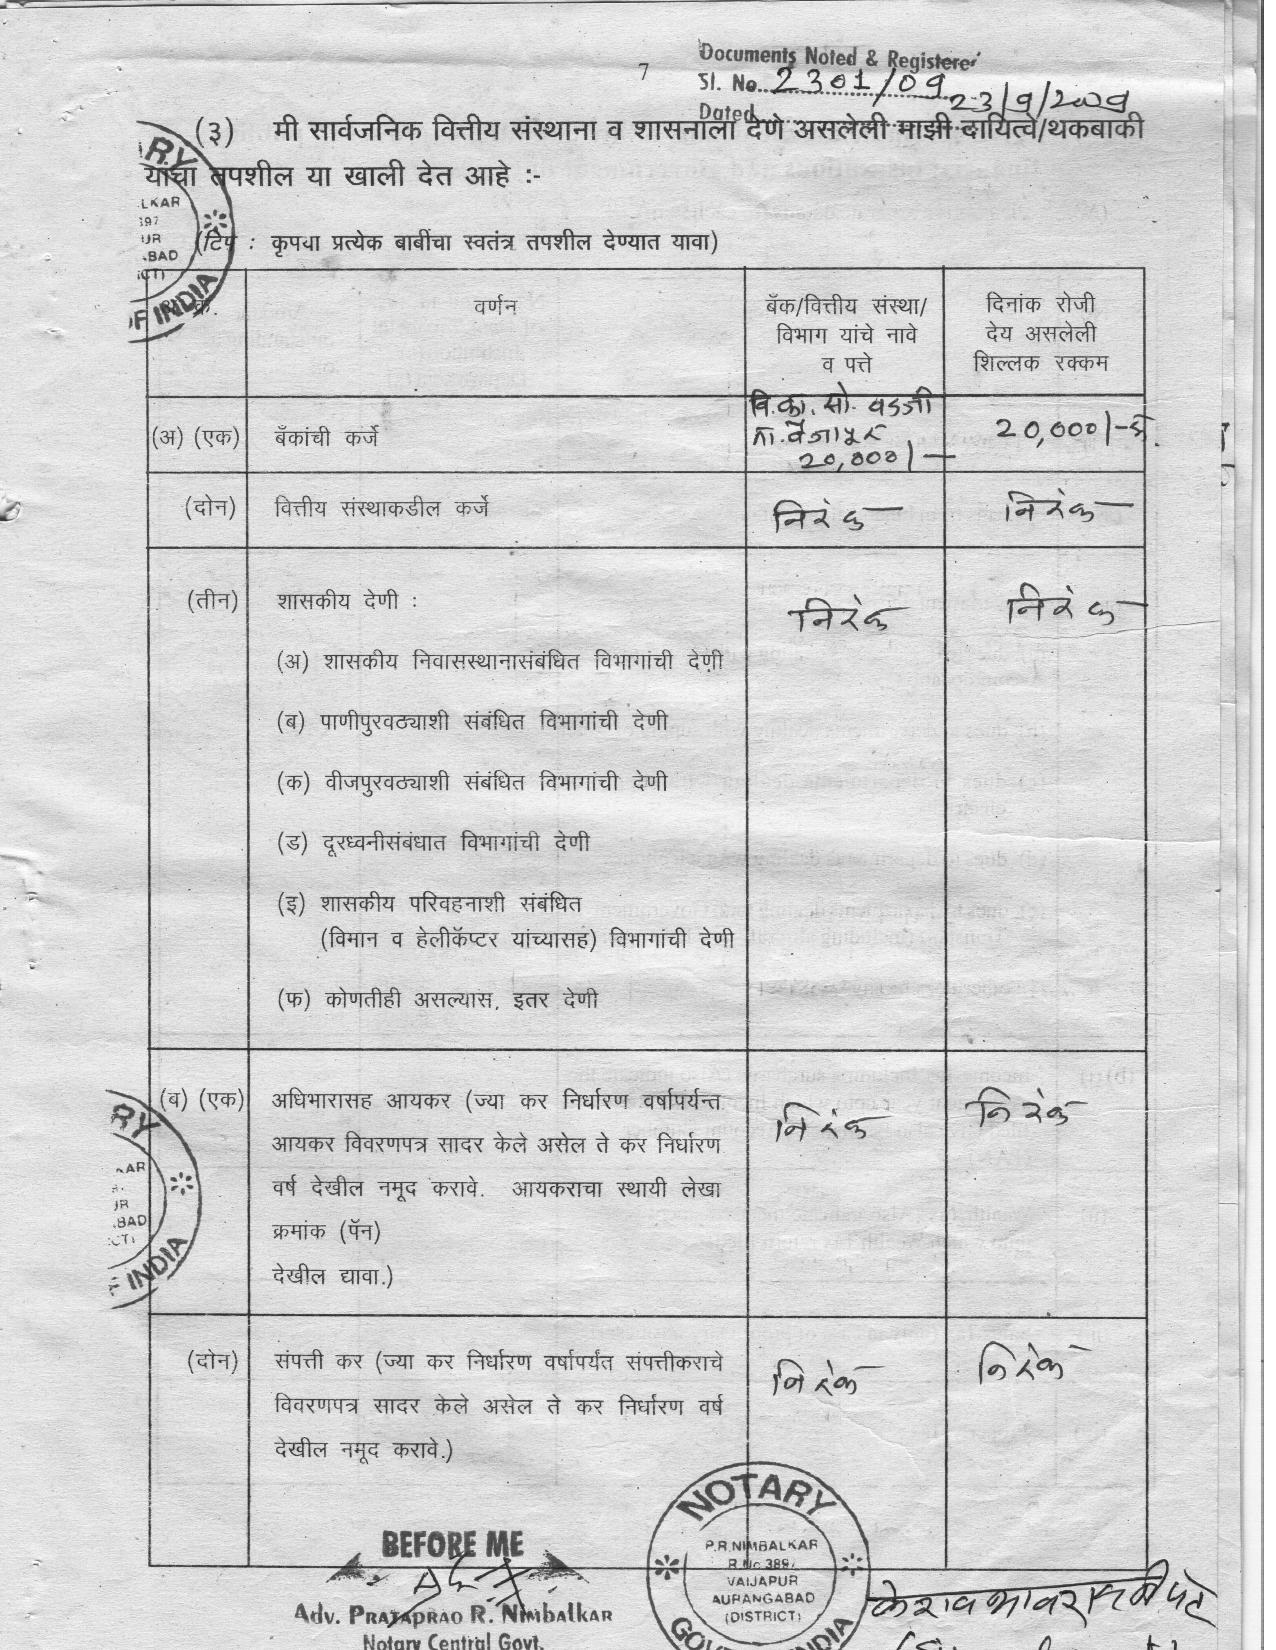 7
Documents Noted & Registerer
Sl. No. 2301/09
Dated 23/9/2009
(३) मी सार्वजनिक वित्तीय संस्थाना व शासनाला देणे असलेली माझी दायित्वे/थकबाकी
यांचा तपशील या खाली देत आहे :-
(टिप : कृपया प्रत्येक बाबींचा स्वतंत्र तपशील देण्यात यावा)
क्र. वर्णन बँक/वित्तीय संस्था/ दिनांक रोजी
विभाग यांचे नावे देय असलेली
व पत्ते शिल्लक रक्कम
वि.का. सो. वडजी
(अ) (एक) बँकांची कर्जे ता. वैजापूर 20,000/-
20,000/-
(दोन) वित्तीय संस्थाकडील कर्जे निरंक निरंक
(तीन) शासकीय देणी : निरंक निरंक
(अ) शासकीय निवासस्थानासंबंधित विभागांची देणी
(ब) पाणीपुरवठ्याशी संबंधित विभागांची देणी
(क) वीजपुरवठ्याशी संबंधित विभागांची देणी
(ड) दूरध्वनीसंबंधात विभागांची देणी
(इ) शासकीय परिवहनाशी संबंधित
(विमान व हेलीकॅप्टर यांच्यासह) विभागांची देणी
(फ) कोणतीही असल्यास, इतर देणी
(ब) (एक) अधिभारासह आयकर (ज्या कर निर्धारण वर्षापर्यन्त निरंक निरंक
आयकर विवरणपत्र सादर केले असेल ते कर निर्धारण
वर्ष देखील नमूद करावे. आयकराचा स्थायी लेखा
क्रमांक (पॅन)
देखील द्यावा.)
(दोन) संपत्ती कर (ज्या कर निर्धारण वर्षापर्यंत संपत्तीकराचे निरंक निरंक
विवरणपत्र सादर केले असेल ते कर निर्धारण वर्ष
देखील नमूद करावे.)
BEFORE ME
Adv. PRATAPRAO R. NIMBALKAR
Notary Central Govt.
NOTARY
P.R.NIMBALKAR
R.No 3897
VAIJAPUR
AURANGABAD
(DISTRICT)